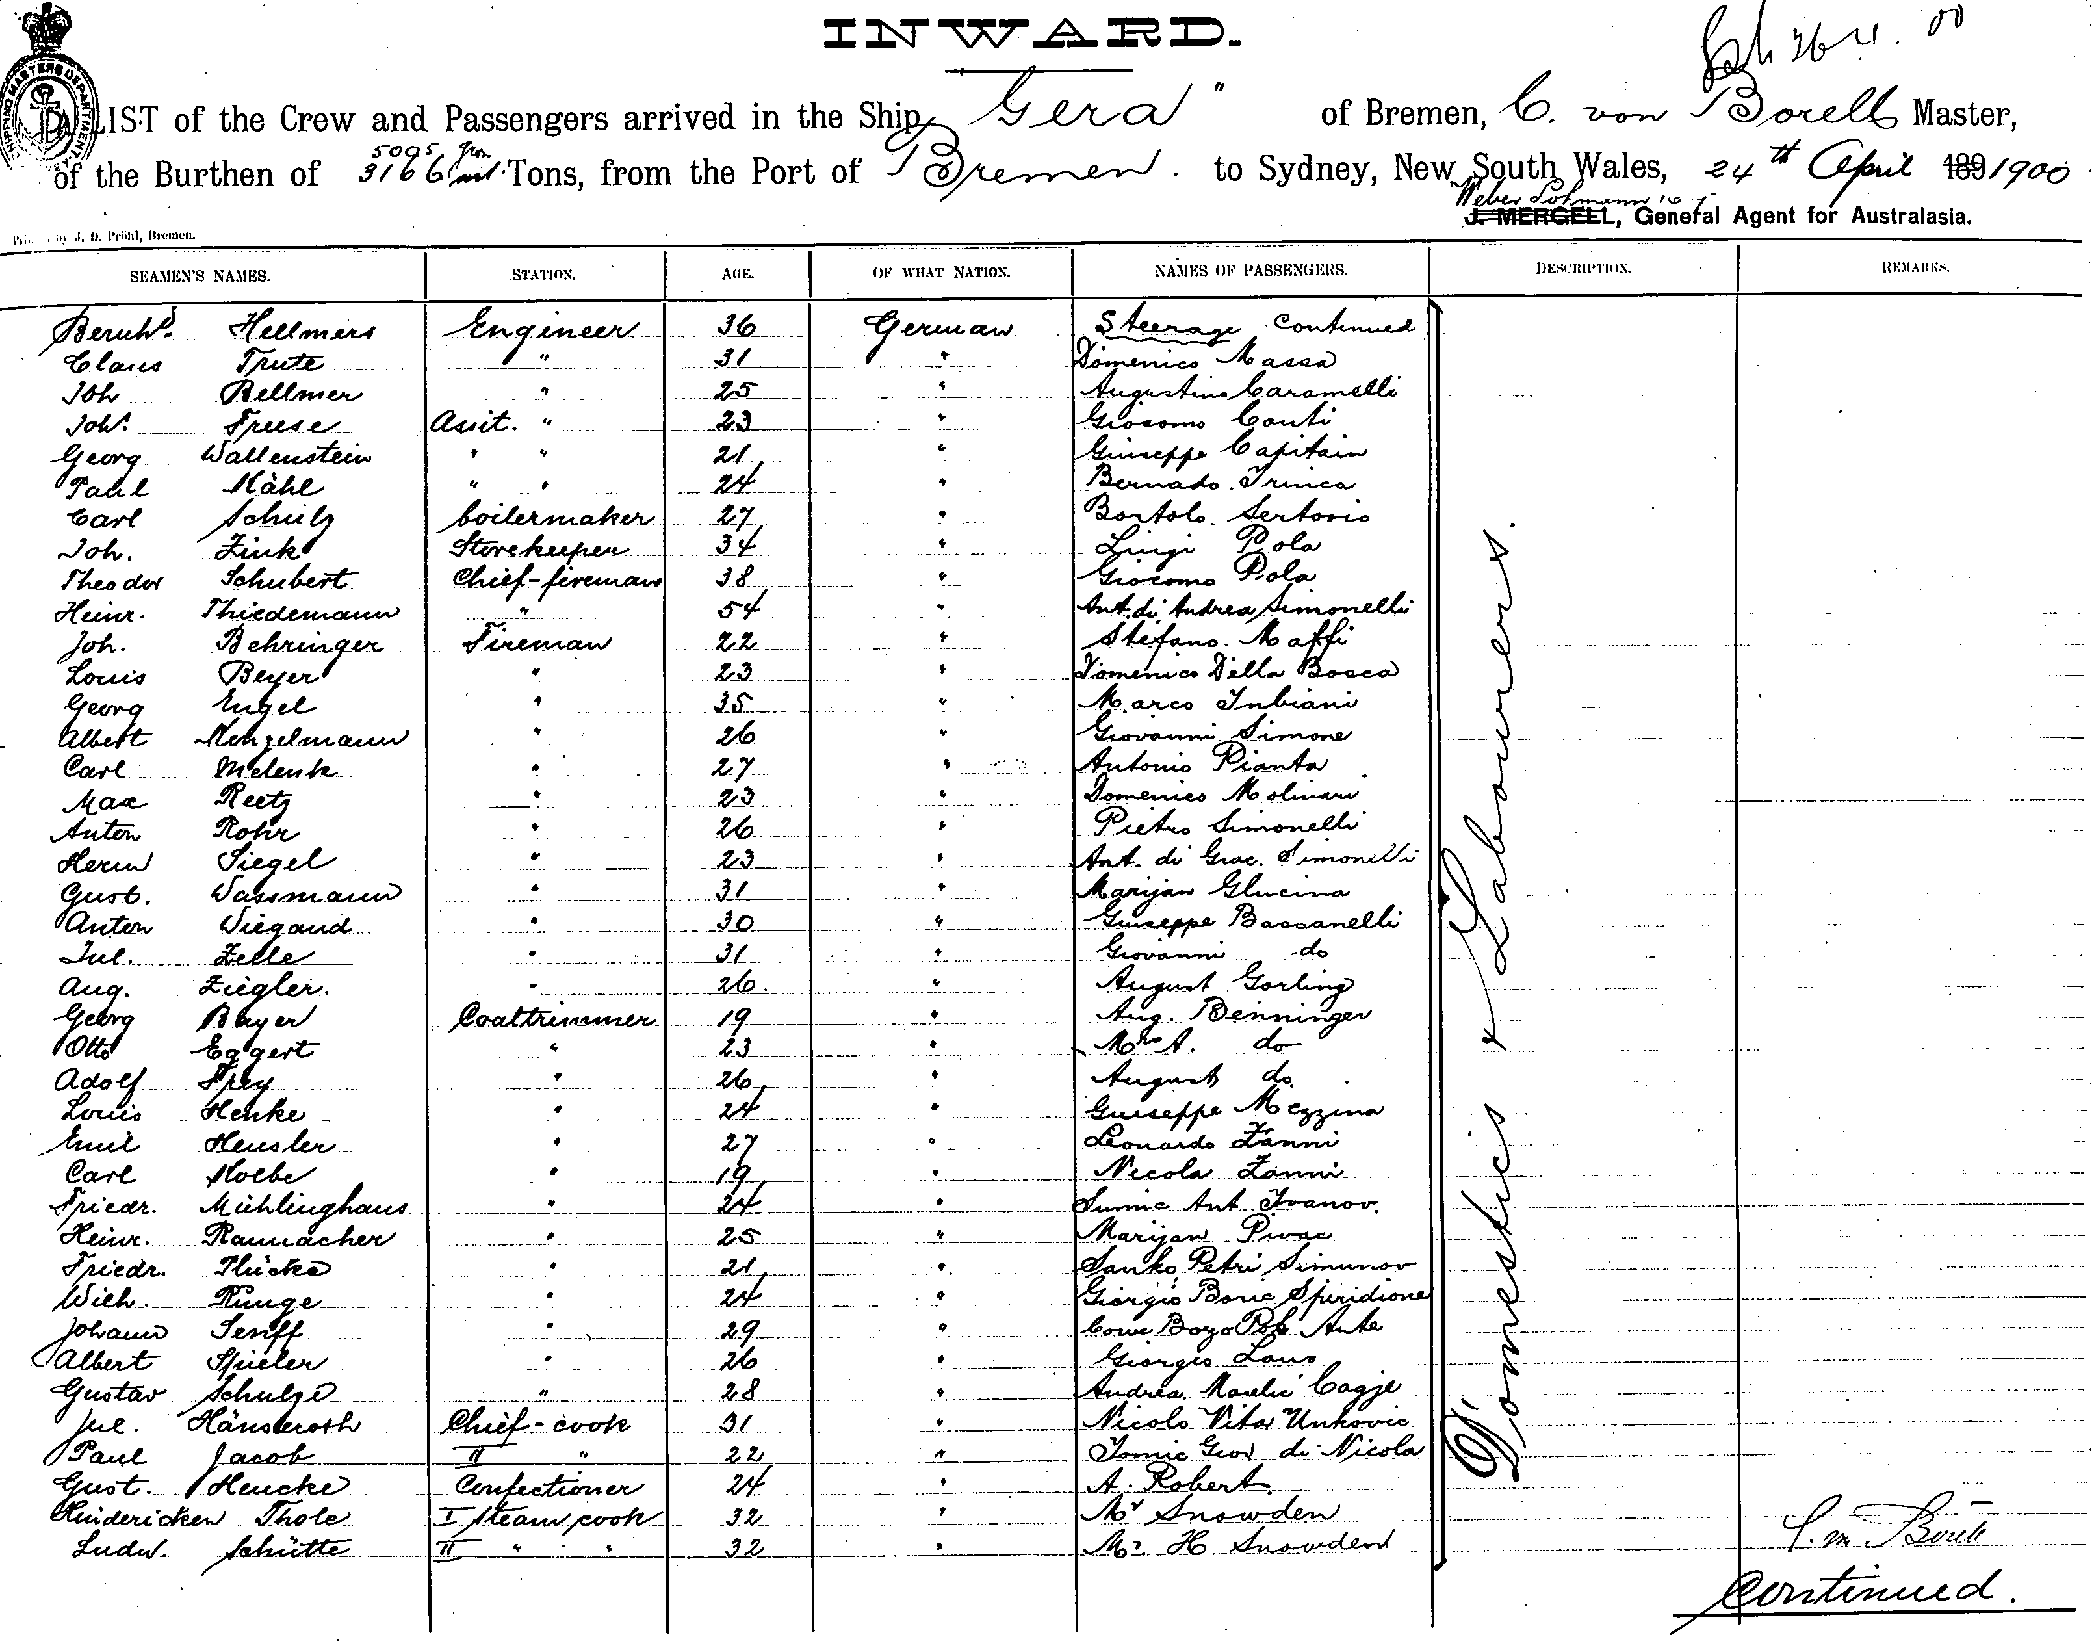 INWARD.
LIST of the Crew and Passengers arrived in the Ship "Gera" of Bremen, C. von Borell Master,
5095
of the Burthen of 3166 Tons, from the Port of Bremen. to Sydney, New South Wales, 24th April 1891900
Weber Lohmann
J. MERGELL, General Agent for Australasia.
by J. D. Pröhl, Bremen.
SEAMEN'S NAMES. STATION. AGE. OF WHAT NATION. NAMES OF PASSENGERS. DESCRIPTION. REMARKS.
Bernhd. Hellmers Engineer 36 German Steerage continued
Claus Trute " 31 " Domenico Massa
Joh Bellmer " 25 " Augustino Caramelli
Johs. Freese Assit. " 23 " Giocomo Conti
Georg Wallenstein " " 21 " Giuseppe Capitain
Paul Mähl " " 24 " Bernado Trinca
Carl Schulz boilermaker 27 " Bortolo Sertorio
Joh. Zink Storekeeper 34 " Luigi Pola
Theodor Schubert Chief-fireman 38 " Giocomo Pola
Heinr. Thiedemann " 54 " Ant. di Andrea Simonelli
Joh. Behringer Fireman 22 " Stefano Maffi
Louis Beyer " 23 " Domenico Della Bosca
Georg Engel " 35 " Marco Inbiani
Albert Menzelmann " 26 " Giovanni Simone
Carl Melenk " 27 " Antonio Pianta
Max Reetz " 23 " Domenico Molinari
Anton Rohr " 26 " Pietro Simonelli
Herm Siegel " 23 " Ant. di Giac. Simonelli
Gust. Wassmann " 31 " Marijan Glucina
Anton Wiegand " 30 " Giuseppe Bassanelli
Jul. Zelle " 31 " Giovanni do
Aug. Ziegler. " 26. " August Gorling
Georg Bayer Coaltrimmer 19 " Aug. Benninger
Otto Eggert " 23 " Mrs A. do
Adolf Frey " 26 " August do.
Louis Henke " 24 " Guiseppe Mezzina
Emil Heusler " 27 " Leonardo Zanni
Carl Nolbe " 19 " Nicola Zanni
Friedr. Mühlinghaus " 24 " Sumic Ant Ivanov.
Heinr. Raumacher " 25 " Marijan Pivac
Friedr. Plücke " 21 " Sanko Petri Simunov
Wilh. Runge " 24 " Giorgio Boric Spiridione
Johann Senff " 29 " Bozo Ante
Albert Spieler " 26 " Giorgio Laus
Gustav Schulze " 28 " Andrea Marelic Cagje
Jul. Hänseroth Chief-cook 31 " Nicolo Vita Unkovic
Paul Jacob II " 22 " Tomic Giov di Nicola
Gust. Hencke Confectioner 24 " A. Robert
Hindericken Thole I steam cook 32 " Mr Snowden
Ludw. Schütte II " " 32 " Mr H Snowden
Domestics & Labourers.
Continued.